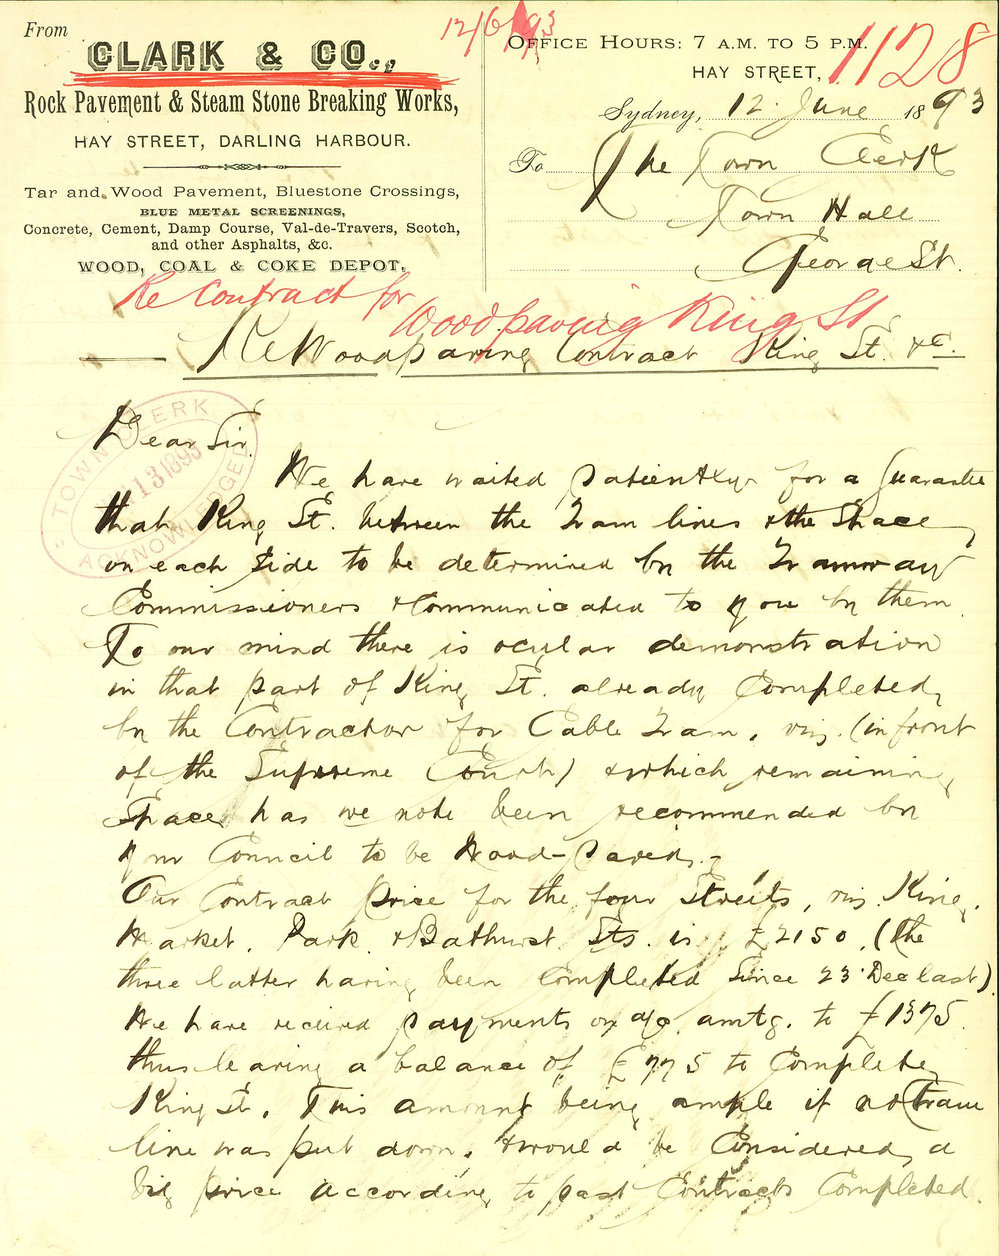 From
CLARK & CO.,
Rock Pavement & Steam Stone Breaking Works,
HAY STREET, DARLING HARBOUR.
Tar and Wood Pavement, Bluestone Crossings,
BLUE METAL SCREENINGS,
Concrete, Cement, Damp Course, Val-de-Travers, Scotch,
and other Asphalts, &c.
WOOD, COAL & COKE DEPOT.
12/6/93
OFFICE HOURS: 7 A.M. TO 5 P.M.
1128
HAY STREET,
Sydney, 12 June 1893
To The Town Clerk
Town Hall
George St.
Re Contract for
Woodpaving King St
Re Woodpaving Contract King St. &c.
TOWN CLERK
13 1893
ACKNOWLEDGED
Dear Sir
We have waited patiently for a Guarantee
that King St. between the Tram lines & the Space
on each side to be determined by the Tramway
Commissioners & Communicated to you by them.
To our mind there is ocular demonstration
in that part of King St. already Completed
by the Contractor for Cable Tram, viz. (in front
of the Supreme Court) & which remaining
Space has we note been recommended by
your Council to be Wood-paved.-
Our Contract price for the four Streets, viz King,
Market, Park & Bathurst Sts. is £2150, (the
three latter having been Completed since 23 Dec last)
We have received payments on a/c amtg. to £1375
thus leaving a balance of £775 to Complete
King St. This amount being ample if no tram
line was put down, & would be Considered a
big price according to past Contracts Completed.